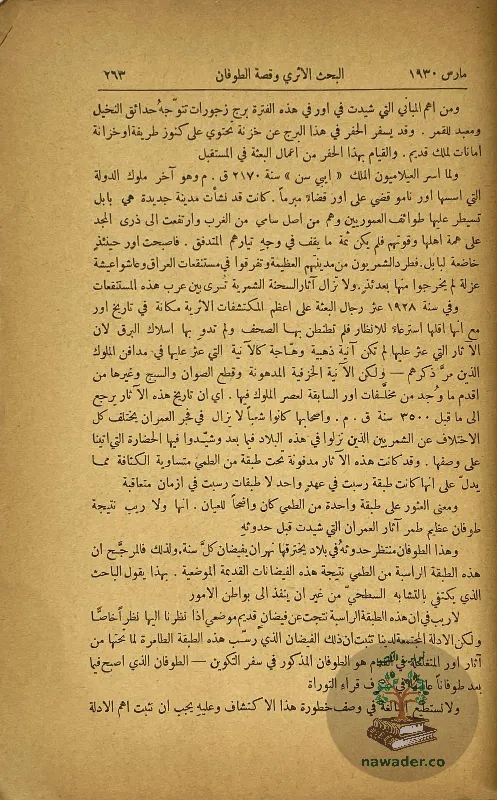 مارس ١٩٣٠ البحث الاثري وقصة الطوفان ٢٦٣
ومن اهم المباني التي شيدت في اور في هذه الفترة برج زجورات تتوّجه حدائق النخيل
ومعبد للقمر . وقد يسفر الحفر في هذا البرج عن خزنة تحتوي على كنوز طريفة او خزانة
امانات لملك قديم . والقيام بهذا الحفر من اعمال البعثة في المستقبل
ولما اسر العيلاميون الملك « ايبي سن » سنة ٢١٧٠ ق . م وهو آخر ملوك الدولة
التي اسسها اور نامو قضي على اور قضاءً مبرماً . كانت قد نشأت مدينة جديدة هي بابل
تسيطر عليها طوائف العموريين وهم من اصل سامي من الغرب وارتفعت الى ذرى المجد
على همة اهلها وقوتهم فلم يكن ثمة ما يقف في وجه تيارهم المتدفق . فاصبحت اور حينئذٍ
خاضعة لبابل . فطرد الشمريون من مدينتهم العظيمة وتفرقوا في مستنقعات العراق وعاشوا عيشة
عزلة لم يخرجوا منها بعدئذٍ . ولا نزال آثار السحنة الشمرية ترى بين عرب هذه المستنقعات
وفي سنة ١٩٢٨ عثر رجال البعثة على اعظم المكتشفات الاثرية مكانة في تاريخ اور
مع انها اقلها استرعاءً للانظار فلم تطنطن بها الصحف ولم تدوِ بها اسلاك البرق لان
الآثار التي عثر عليها لم تكن آنية ذهبية وهّاجة كالآنية التي عثر عليها في مدافن الملوك
الذين مرَّ ذكرهم — ولكن الآنية الخزفية المدهونة وقطع الصوان والسبج وغيرها من
اقدم ما وُجد من مخلَّفات اور السابقة لعصر الملوك فيها . اي ان تاريخ هذه الآثار يرجع
الى ما قبل ٣٥٠٠ سنة ق . م . واصحابها كانوا شعباً لا يزال في فجر العمران يختلف كل
الاختلاف عن الشمريين الذين نزلوا في هذه البلاد فيما بعد وشيّدوا فيها الحضارة التي اتينا
على وصفها . وقد كانت هذه الآثار مدفونة تحت طبقة من الطمي متساوية الكثافة مما
يدلّ على انها كانت طبقة رسبت في عهدٍ واحد لا طبقات رسبت في ازمان متعاقبة
ومعنى العثور على طبقة واحدة من الطمي كان واضحاً للعيان . انها ولا ريب نتيجة
طوفان عظيم طمر آثار العمران التي شيدت قبل حدوثه
وهذا الطوفان منتظر حدوثه في بلاد يخترقها نهران يفيضان كلَّ سنة، ولذلك فالمرجَّح ان
هذه الطبقة الراسبة من الطمي نتيجة هذه الفيضانات القديمة الموضعية . بهذا يقول الباحث
الذي يكتفي بالتشابه السطحيّ من غير ان ينفذ الى بواطن الامور
لا ريب في ان هذه الطبقة الراسبة نتجت عن فيضان قديم موضعي اذا نظرنا اليها نظراً خاصًّا
ولكن الادلة المجتمعة لدينا تثبت ان ذلك الفيضان الذي رسّب هذه الطبقة الطامرة لما تحتها من
آثار اور المتغلغلة في القدم هو الطوفان المذكور في سفر التكوين — الطوفان الذي اصبح فيما
بعد طوفاناً في عرف قراءِ التوراة
ولا نستطيع المبالغة في وصف خطورة هذا الاكتشاف وعليهِ يجب ان تثبت اهم الادلة
nawader.co